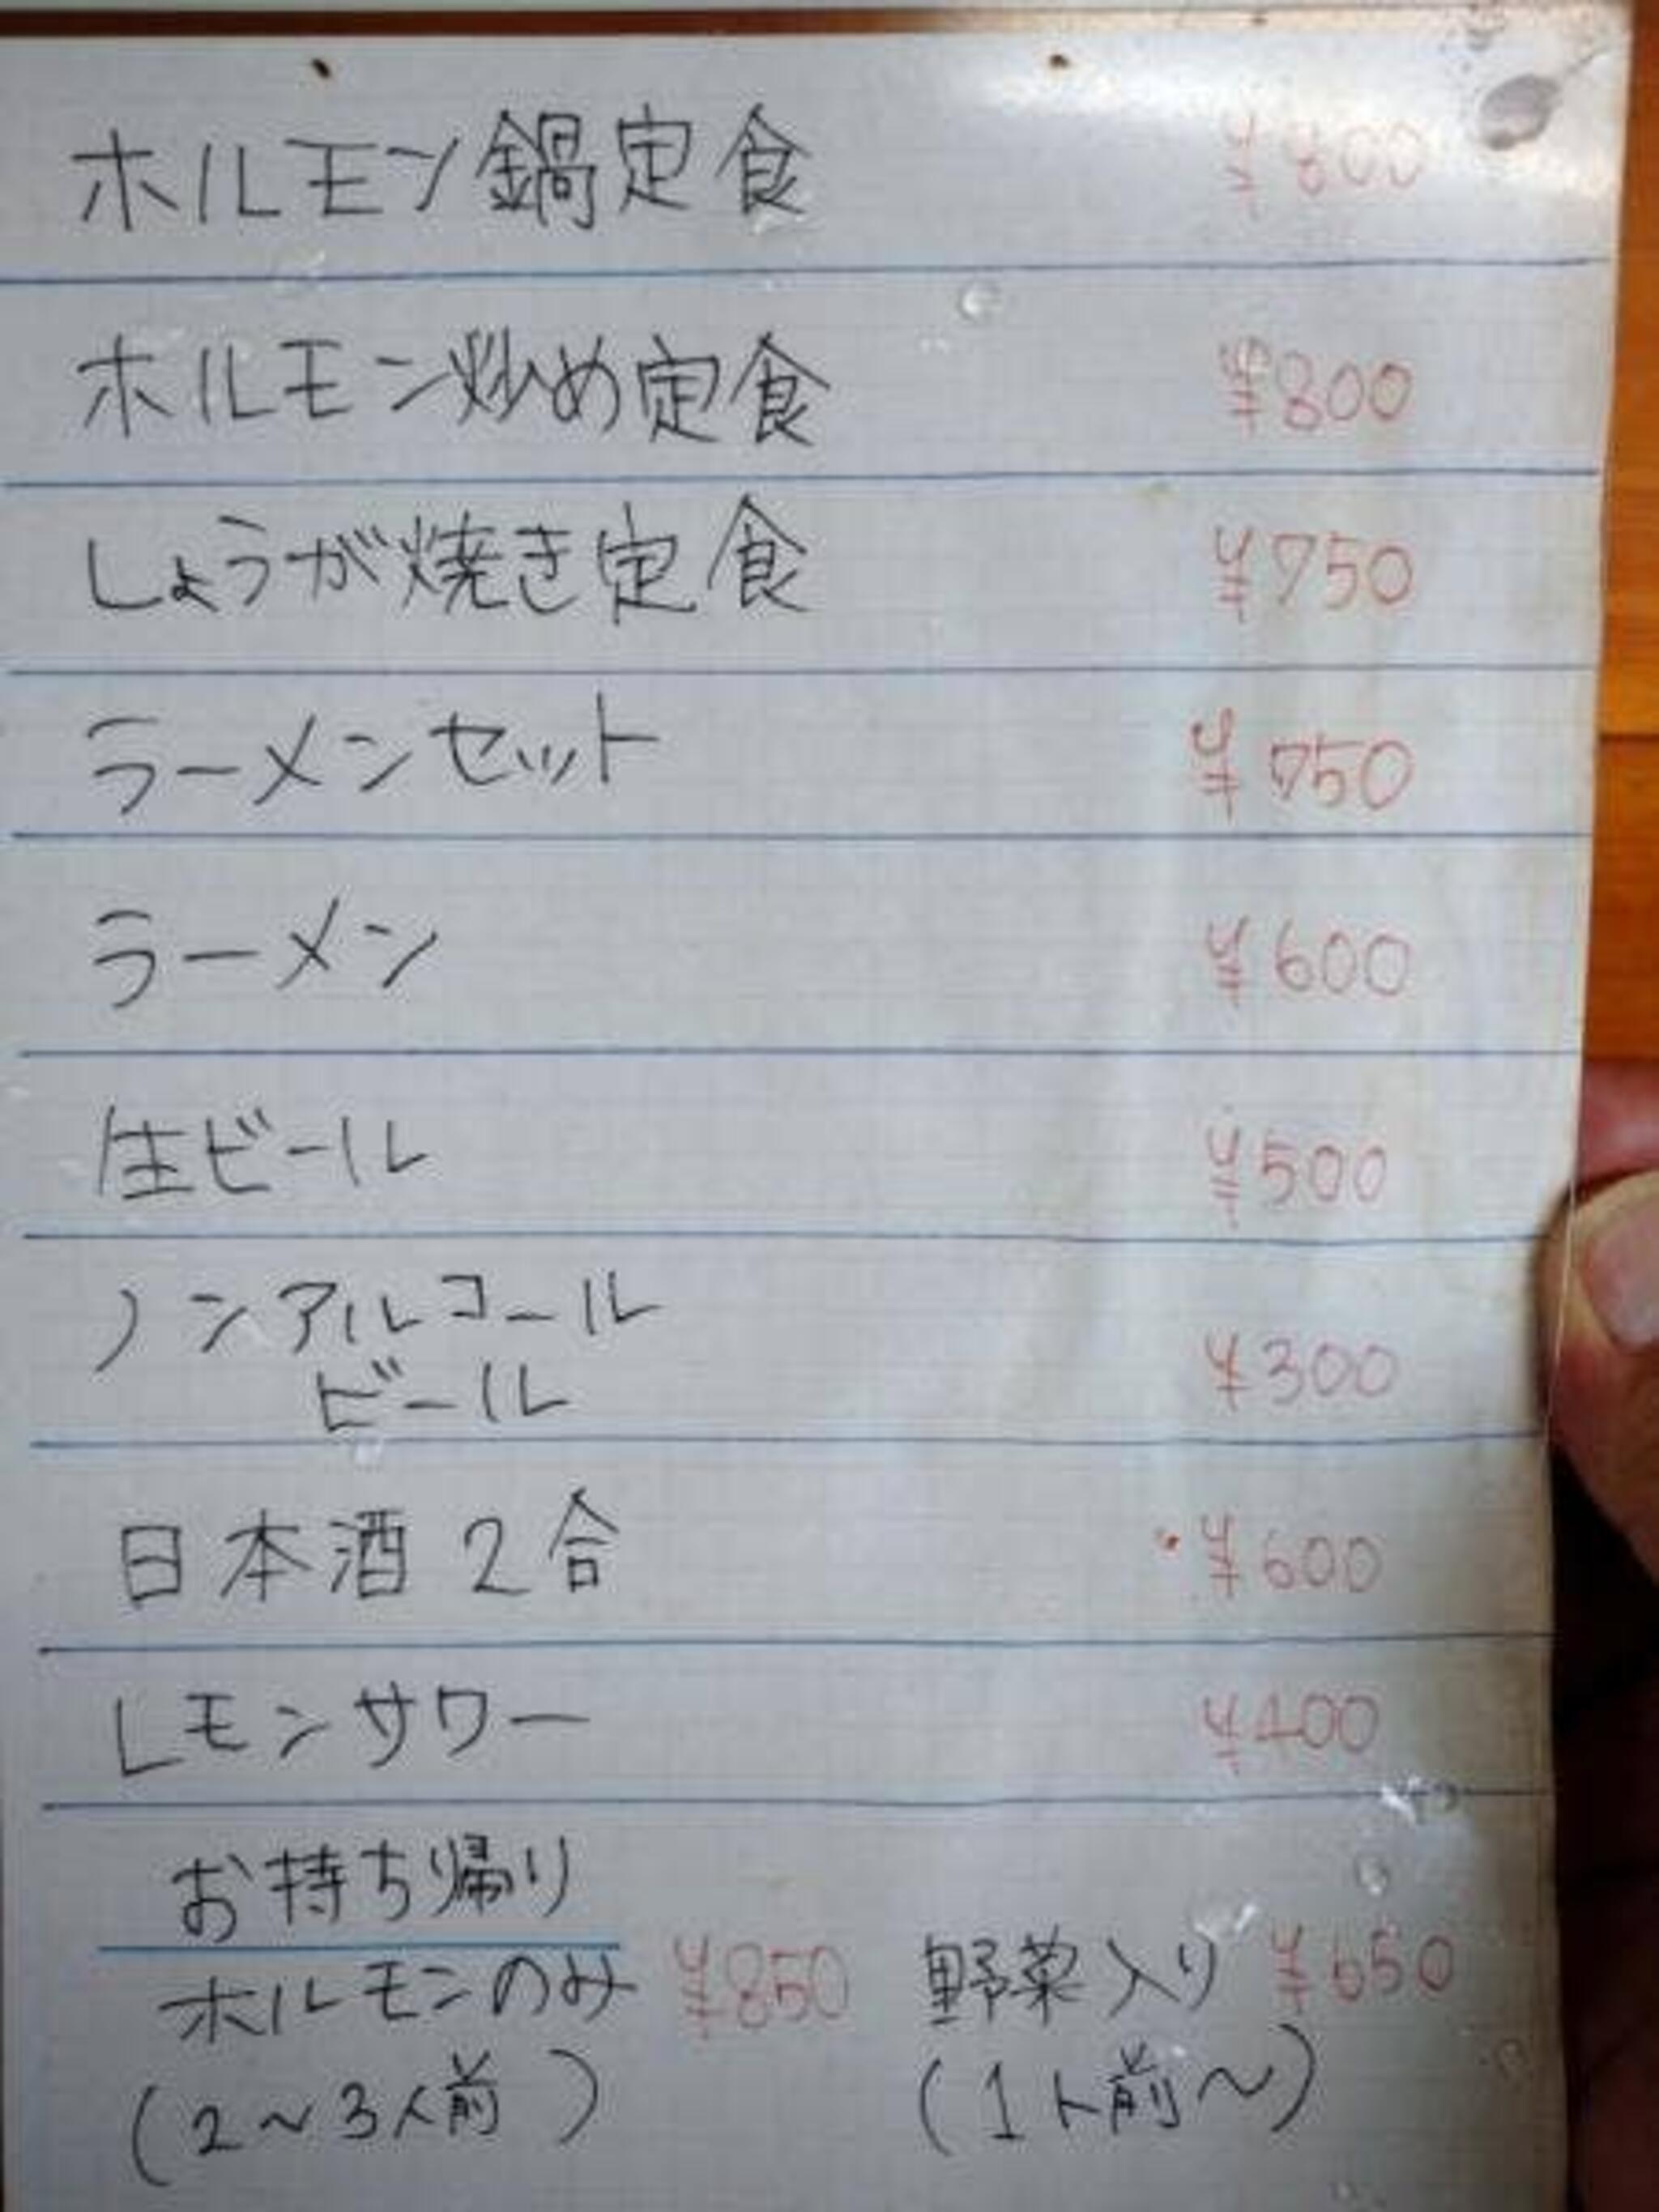 ホルモン鍋定食 ¥800
ホルモン炒め定食 ¥800
しょうが焼き定食 ¥750
ラーメンセット ¥750
ラーメン ¥600
生ビール ¥500
ノンアルコール
ビール ¥300
日本酒 2合 ¥600
レモンサワー ¥400
お持ち帰り
ホルモンのみ ¥850 野菜入り ¥650
(2~3人前) (1人前~)